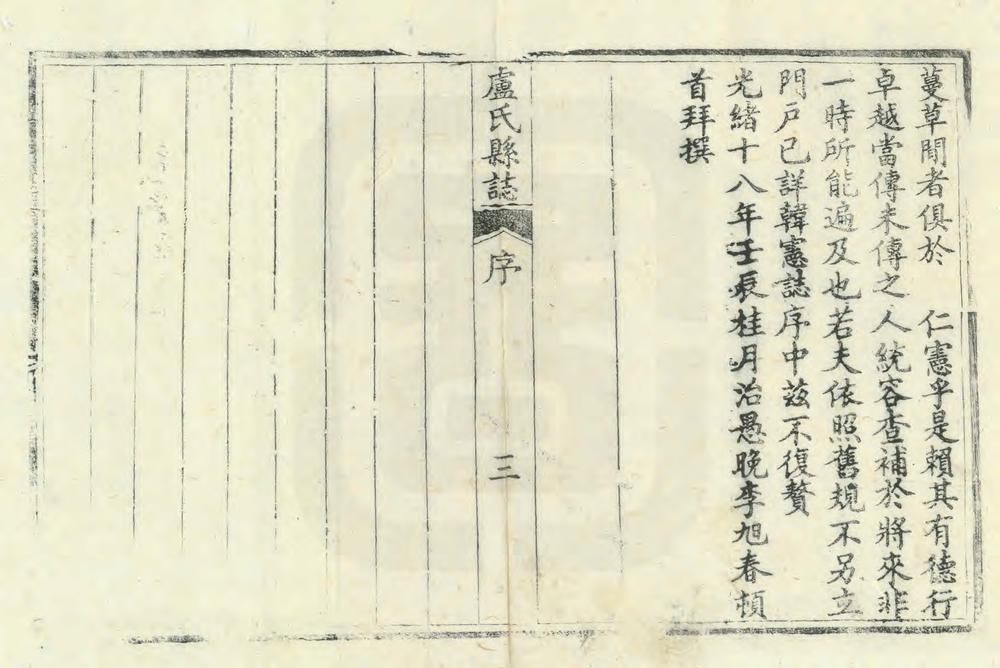 蔓草間者俱於　仁憲乎是賴其有德行
卓越當傳未傳之人統容查補於將來非
一時所能遍及也若夫依照舊規不另立
門戶已詳韓憲誌序中茲不復贅
光緒十八年壬辰桂月治愚晚李旭春頓
首拜撰
盧氏縣誌　序　三